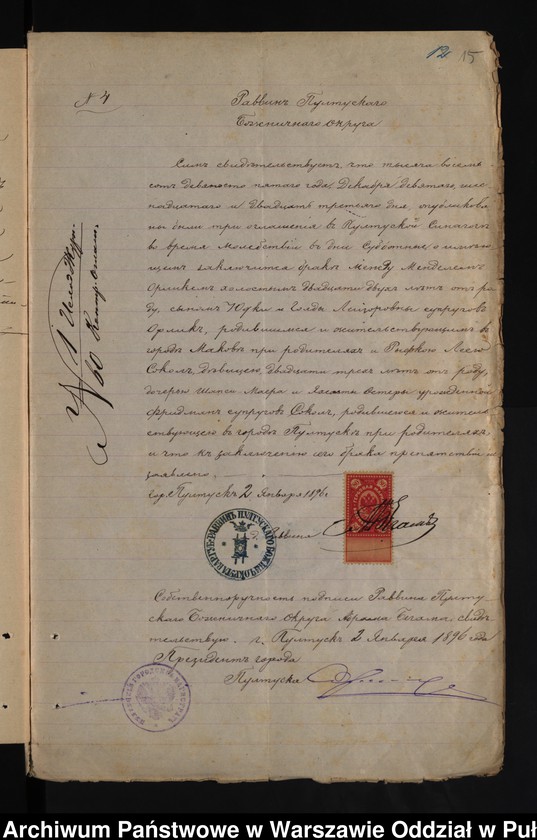 12 15
№ 4
Раввинъ Пултускаго
Божничнаго Округа
Симъ свидѣтельствуетъ что тысяча восемь
сотъ девяносто пятаго года, Декабря девятаго, шес
надцатаго и двадцать третьяго дня, опубликова
ны были три оглашенія въ Пултуской Синагогѣ
во время Молебствій въ дни Субботніе, о имѣю
щемъ заключится бракѣ между Менделемъ
Орликомъ холостымъ двадцати двухъ лѣтъ отъ ро
ду, сыномъ Юдки и Голды Лейзоровны супруговъ
Орликъ, родившимся и жительствующимъ въ
городѣ Маковѣ при родителяхъ и Рыфкою Лею
Соколъ дѣвицею, двадцати трехъ лѣтъ отъ роду,
дочерью Шапси Маера и Эстеры урожденной
Фридманъ супруговъ Соколъ, родившеюся и житель
ствующею въ городѣ Пултускѣ при родителяхъ,
и что къ заключенію сего брака препятствій не
заявлено.
гор. Пултускъ 2 Января 1896 г.
Раввинъ
Собственноручность подписи Раввина Пулту
скаго Божничнаго Округа Арона Бегама свидѣ
тельствую. г. Пултускъ 2 Января 1896 года
Президентъ города
Пултуска
Archiwum Państwowe w Warszawie Oddział w Puł